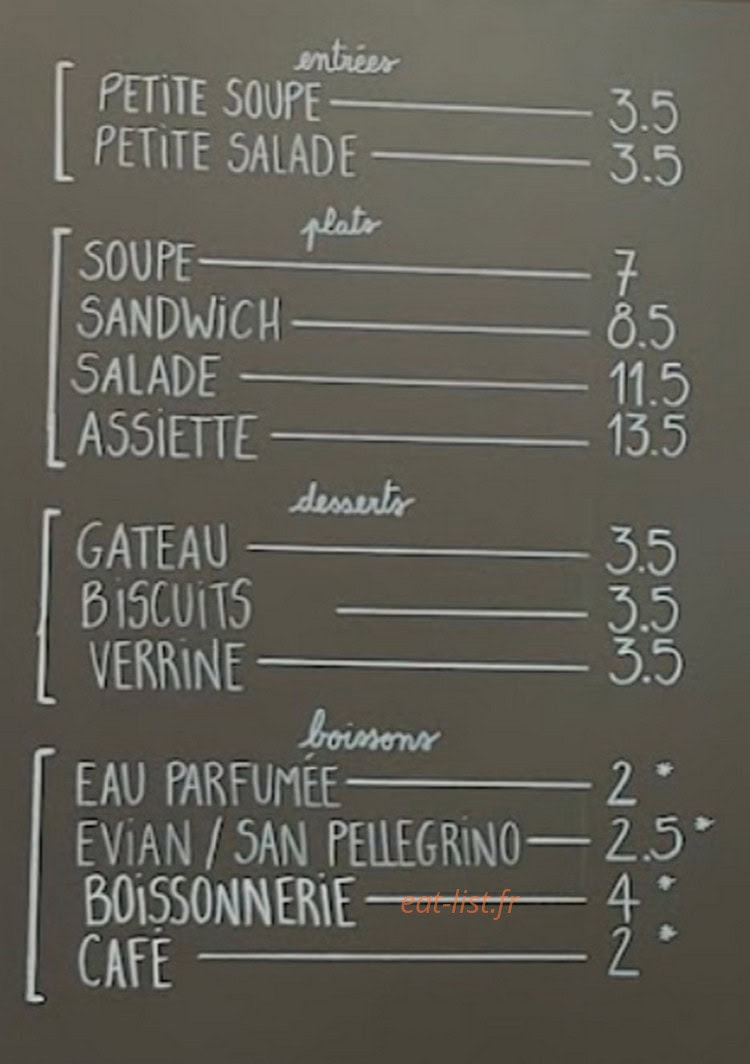 entrées
PETITE SOUPE 3.5
PETITE SALADE 3.5
plats
SOUPE 7
SANDWICH 8.5
SALADE 11.5
ASSIETTE 13.5
desserts
GATEAU 3.5
BISCUITS 3.5
VERRINE 3.5
boissons
EAU PARFUMÉE 2 *
EVIAN / SAN PELLEGRINO 2.5 *
BOISSONNERIE 4 *
eat-list.fr
CAFÉ 2 *